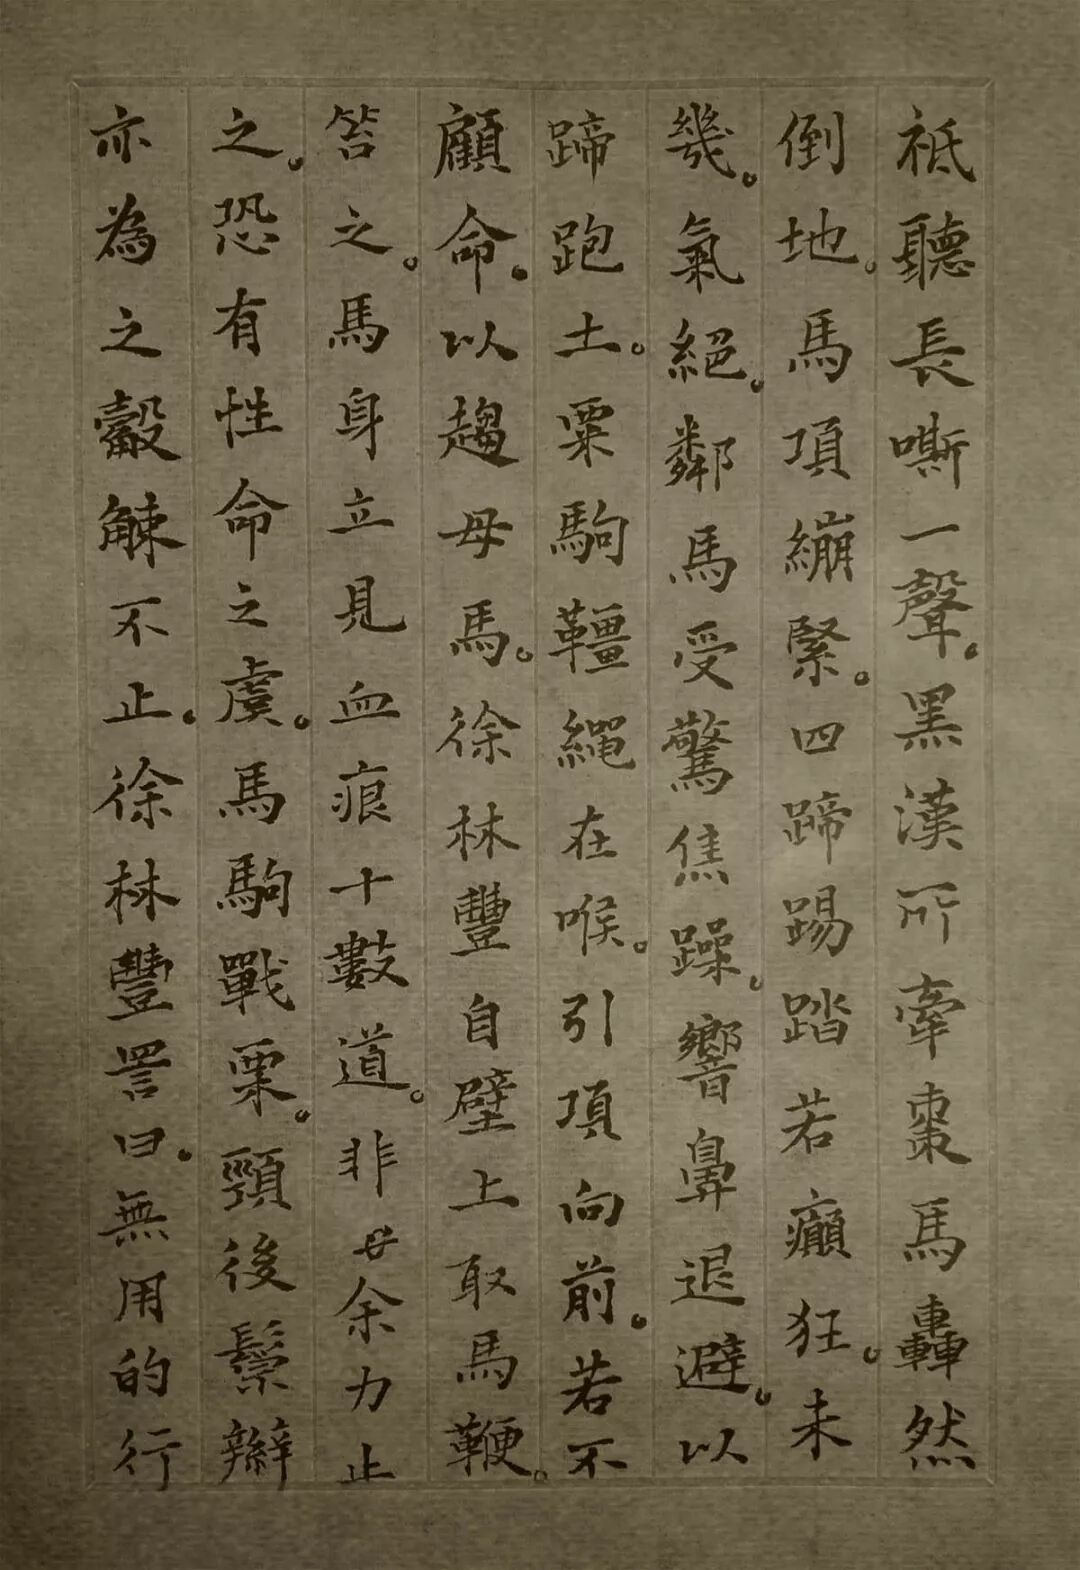 祗聽長嘶一聲。黑漢所牽棗馬轟然
倒地。馬項繃緊。四蹄踢踏若癲狂。未
幾。氣絕。鄰馬受驚焦躁。響鼻退避。以
蹄跑土。粟駒韁繩在喉。引項向前。若不
顧命。以趨母馬。徐林豐自壁上取馬鞭。
笞之。馬身立見血痕十數道。非母余力止
之。恐有性命之虞。馬駒戰栗。頸後鬃辮
亦為之觳觫不止。徐林豐詈曰。無用的行